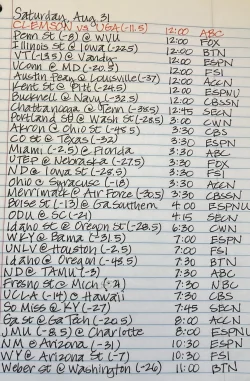 Saturday, Aug 31
CLEMSON vs UGA (-11.5) 12:00 ABC
Penn St (-8) @ WVU 12:00 FOX
Illinois St @ Iowa (-22.5) 12:00 BTN
VT (-13.5) @ Vandy 12:00 ESPN
UConn @ MD (-20.5) 12:00 FS1
Austin Peay @ Louisville (-37) 12:00 ACCN
Kent St @ Pitt (-24.5) 12:00 ESPNU
Bucknell @ Navy (-32.5) 12:00 CBSSN
Chattanooga @ Tenn (-38.5) 12:45 SECN
Portland St @ Wash St (-28.5) 3:00 CWN
Akron @ Ohio St (-48.5) 3:30 CBS
CO St @ Texas (-32) 3:30 ESPN
Miami (-2.5) @ Florida 3:30 ABC
UTEP @ Nebraska (-27.5) 3:30 FOX
ND @ Iowa St (-28.5) 3:30 FS1
Ohio @ Syracuse (-18) 3:30 ACCN
Merrimack @ Air Force (-30.5) 3:30 CBSSN
Boise St (-13) @ GA Southern 4:00 ESPNU
ODU @ SC (-21) 4:15 SECN
Idaho St @ Oregon St (-28.5) 6:30 CWN
WKY @ Bama (-31.5) 7:00 ESPN
UNLV @ Houston (-2.5) 7:00 FS1
Idaho @ Oregon (-48.5) 7:30 BTN
ND @ TAMU (-3) 7:30 ABC
Fresno St @ Mich 7:30 NBC
UCLA (-14) @ Hawaii 7:30 CBS
So Miss @ KY (-27) 7:45 SECN
Ga St @ Ga Tech (-20.5) 8:00 ACCN
JMU (-8.5) @ Charlotte 8:00 ESPNU
NM @ Arizona (-31) 10:30 ESPN
WY @ Arizona St (-7) 10:30 FS1
Weber St @ Washington (-26) 11:00 BTN